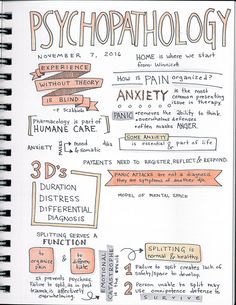 PSYCHOPATHOLOGY
NOVEMBER 7, 2016
HOME is where we start
from. Winnicott
EXPERIENCE
WITHOUT THEORY
IS BLIND
How is PAIN organized?
ANXIETY is the most
common presenting
issue in therapy.
PANIC removes the ability to think.
overwhelms defenses
often masks ANGER.
Pharmacology is part of
HUMANE CARE.
SOME ANXIETY
is essential & part of life
ANXIETY
PATIENTS NEED TO REGISTER, REFLECT & RESPOND.
3 D's
DURATION
DISTRESS
DIFFERENTIAL
DIAGNOSIS
PANIC ATTACKS are not a diagnosis,
they are symptoms of another dx.
MODEL OF MENTAL SPACE
SPLITTING SERVES A
FUNCTION
to
organize
pain
&
to
differentiate
It prevents psychosis.
Failure to split, as in post
trauma, is affectively
overwhelming.
EMOTIONAL
CATASTROPHE
is the result
SPLITTING is
normal & healthy
1 Failure to split creates lack of
safety/space to develop.
2 Person unable to split may
use omnipotence defense to
SURVIVE